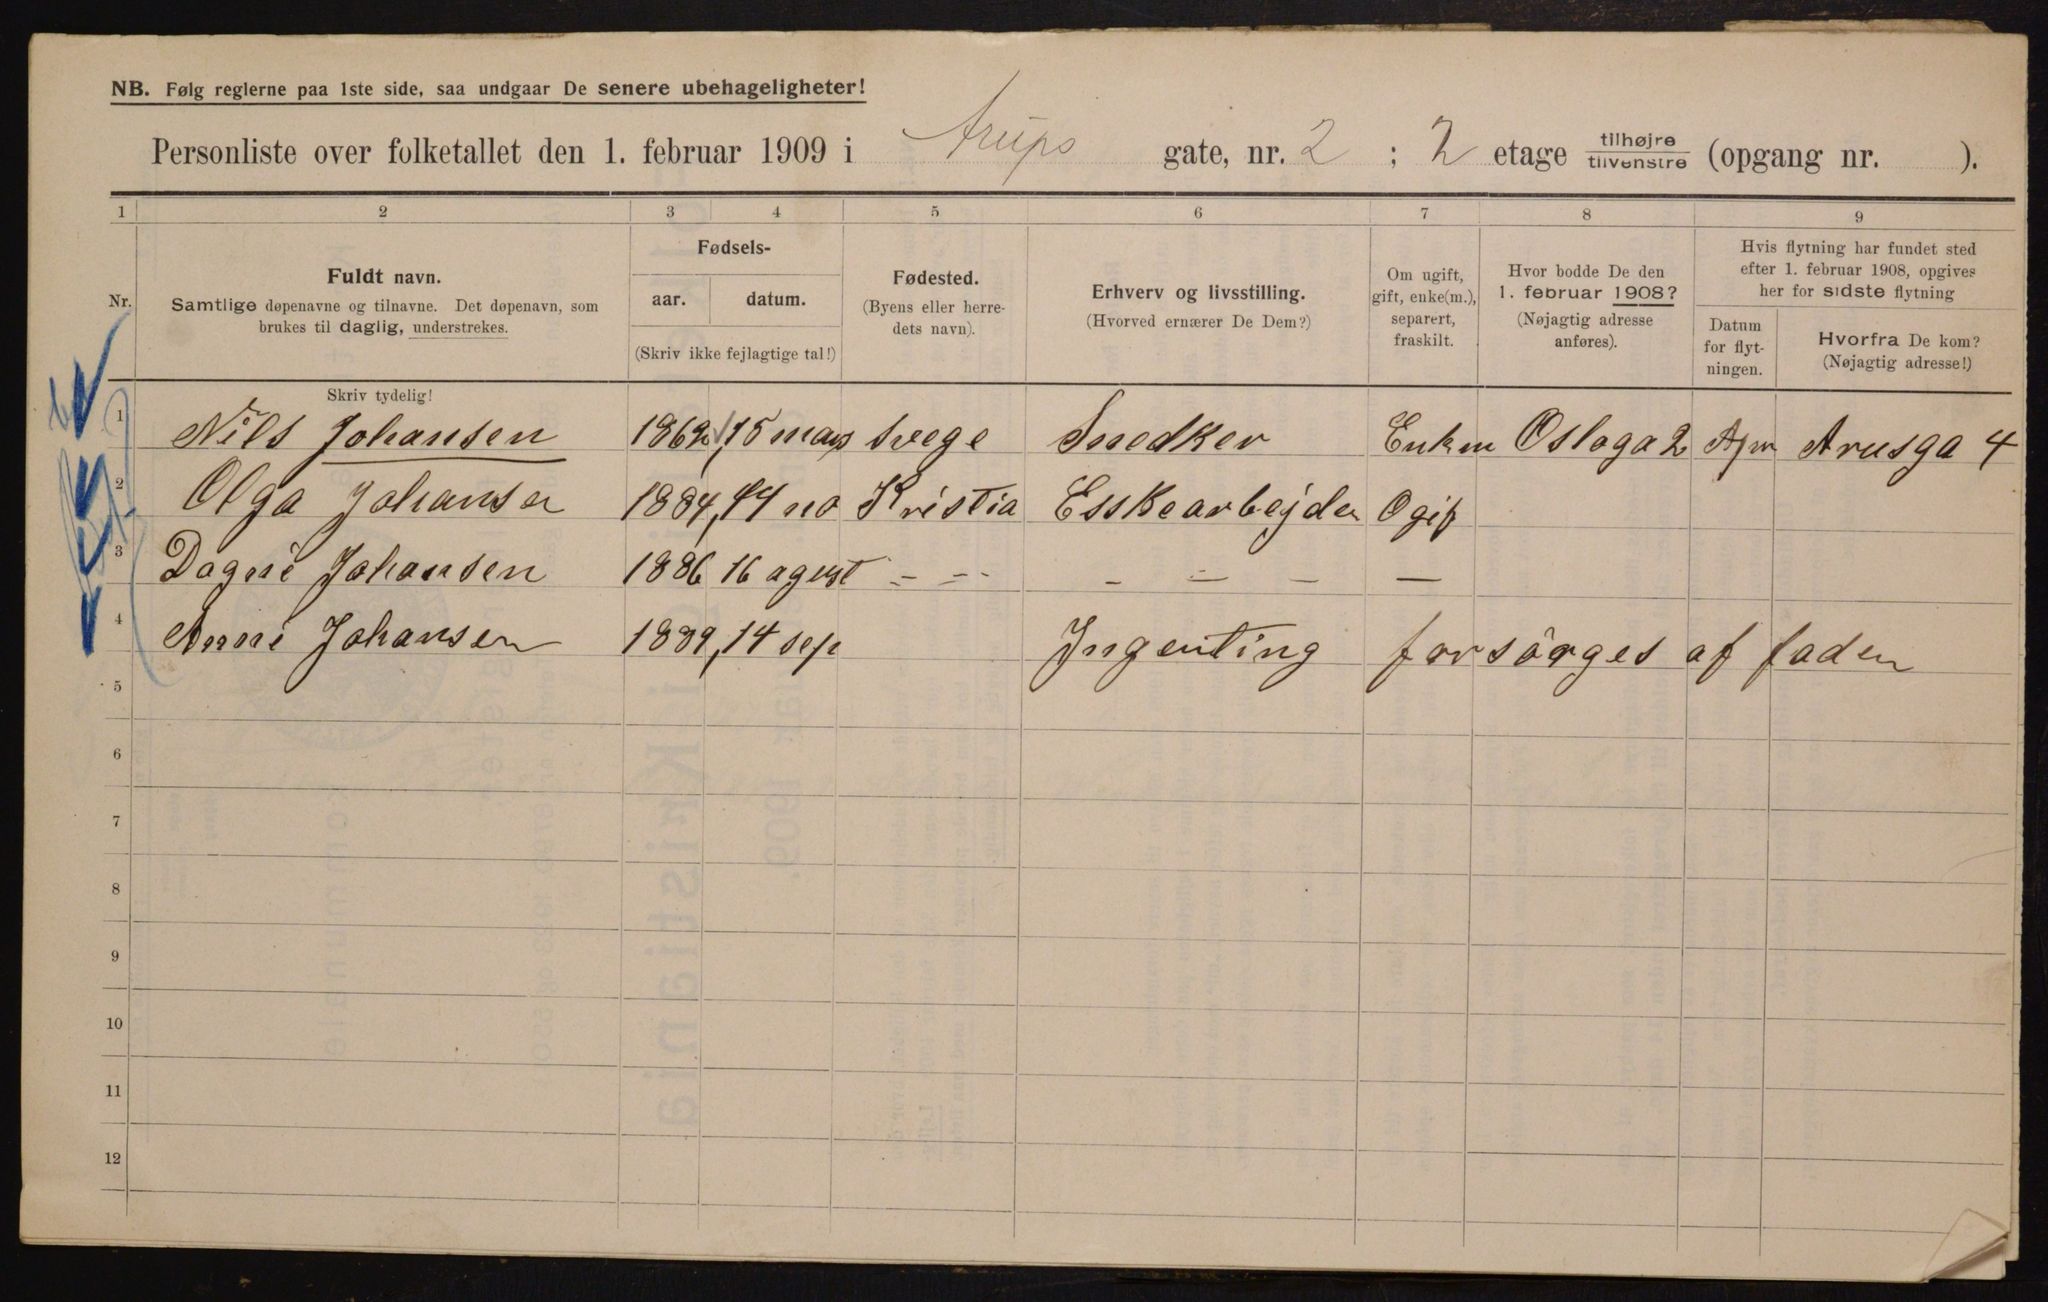 NB. Følg reglerne paa 1ste side, saa undgaar De senere ubehageligheter!
Personliste over folketallet den 1. februar 1909 i Arups gate, nr. 2 ; 2 etage tilhøjre tilvenstre (opgang nr. ).
1 2 3 4 5 6 7 8 9
Nr.
Fuldt navn.
Samtlige døpenavne og tilnavne. Det døpenavn, som
brukes til daglig, understrekes.
Fødsels-
aar. datum.
(Skriv ikke fejlagtige tal!)
Fødested.
(Byens eller herre-
dets navn).
Erhverv og livsstilling.
(Hvorved ernærer De Dem?)
Om ugift,
gift, enke(m.),
separert,
fraskilt.
Hvor bodde De den
1. februar 1908?
(Nøjagtig adresse
anføres).
Hvis flytning har fundet sted
efter 1. februar 1908, opgives
her for sidste flytning
Datum
for flyt-
ningen.
Hvorfra De kom?
(Nøjagtig adresse!)
Skriv tydelig!
1 Nils Johansen 1862, 15 mars Svege Snedker Enkm Osloga 2 Apr Arusga 4
2 Olga Johansen 1884, 14 no Kristia Esskearbejder Ogif
3 Dagni Johansen 1886 16 agust - -- - - - -
4 Anni Johansen 1889, 14 sep Ingenting forsörges af faden
5
6
7
8
9
10
11
12